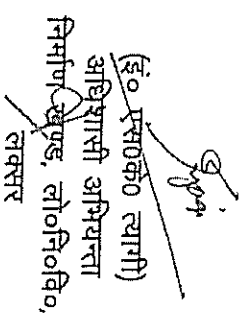 (इं० एस०के० त्यागी)
अधिशासी अभियन्ता
निर्माण खण्ड, लो०नि०वि०,
लक्सर